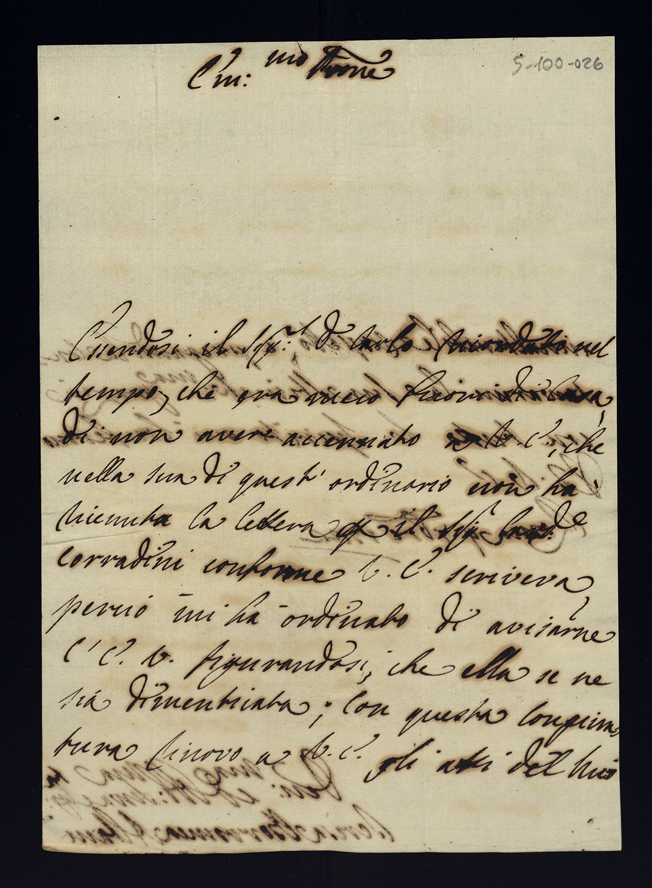 5-100-026
Em:mo Prone
Essendosi il Sig:r D. Carlo nel
tempo, che era meco fuori di Casa,
di non aver accennato a V. E., che
nella sua di quest' ordinario non hà
ricevuta la lettera p il Sig:r Card:le
Corradini conforme V. E. scriveva,
perciò mi hà ordinato di avisarne
l'E. V. figurandosi, che ella se ne
sia dimenticata; Con questa congiun
tura rinovo a V. E. gli atti del mio